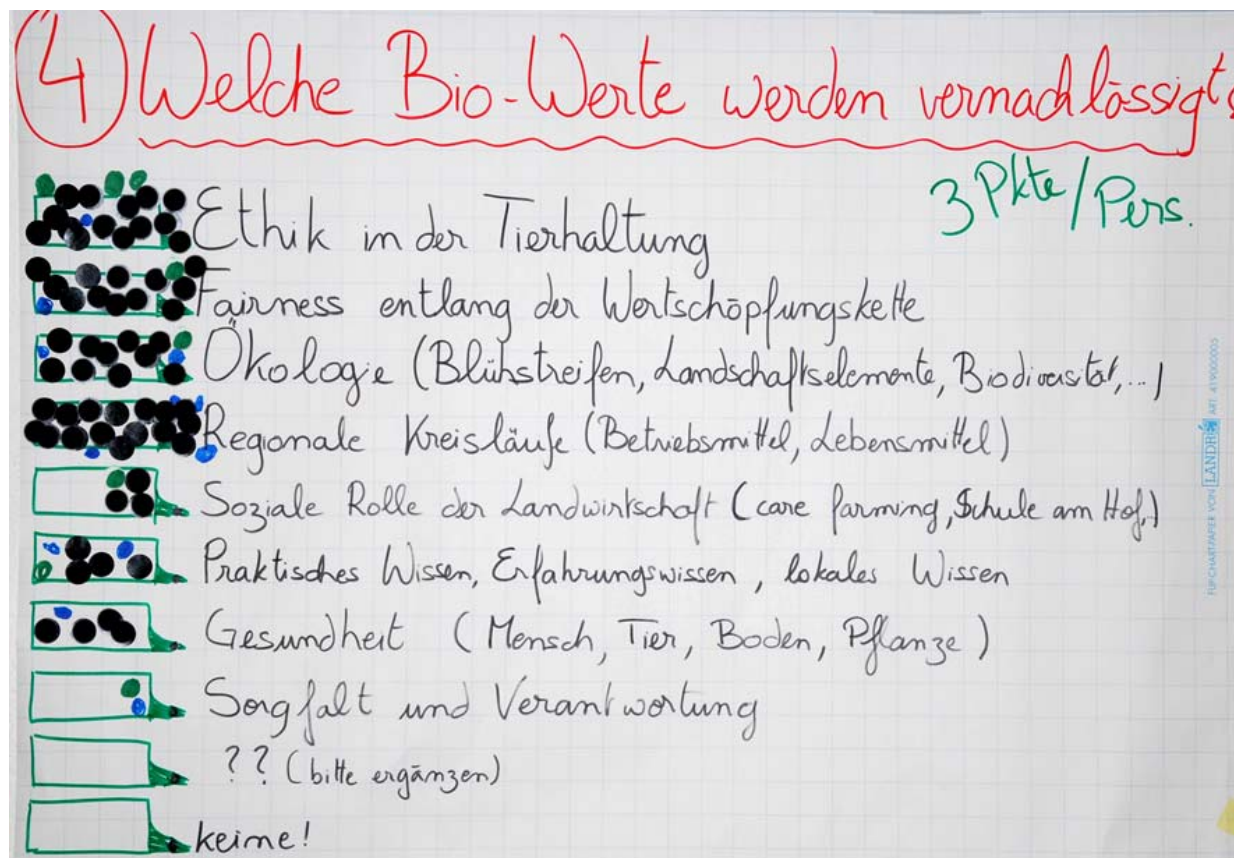 4 Welche Bio-Werte werden vernachlässigt?
3 Pkte/Pers.
Ethik in der Tierhaltung
Fairness entlang der Wertschöpfungskette
Ökologie (Blühstreifen, Landschaftselemente, Biodiversität,...)
Regionale Kreisläufe (Betriebsmittel, Lebensmittel)
Soziale Rolle der Landwirtschaft (care farming, Schule am Hof,)
Praktisches Wissen, Erfahrungswissen, lokales Wissen
Gesundheit (Mensch, Tier, Boden, Pflanze)
Sorgfalt und Verantwortung
?? (bitte ergänzen)
keine!
FLIPCHARTPAPIER VON LANDRÉ ART. 419000003